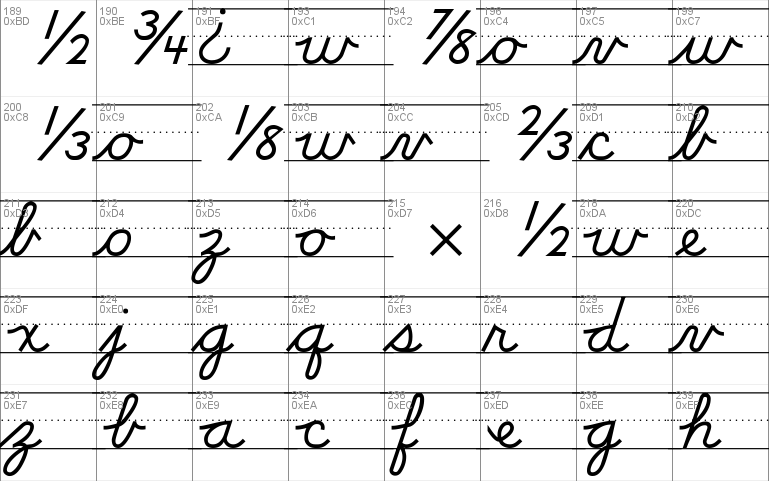 189 190 191 193 194 196 197 199
0xBD 0xBE 0xBF 0xC1 0xC2 0xC4 0xC5 0xC7
½ ¾ ¿ w ⅞ o v w
200 201 202 203 204 205 209 210
0xC8 0xC9 0xCA 0xCB 0xCC 0xCD 0xD1 0xD2
⅓ o ⅛ w v ⅔ c b
211 212 213 214 215 216 218 220
0xD3 0xD4 0xD5 0xD6 0xD7 0xD8 0xDA 0xDC
b o z o × ½ w e
223 224 225 226 227 228 229 230
0xDF 0xE0 0xE1 0xE2 0xE3 0xE4 0xE5 0xE6
x j g q s r d v
231 232 233 234 236 237 238 239
0xE7 0xE8 0xE9 0xEA 0xEC 0xED 0xEE 0xEF
z b a c f e g h